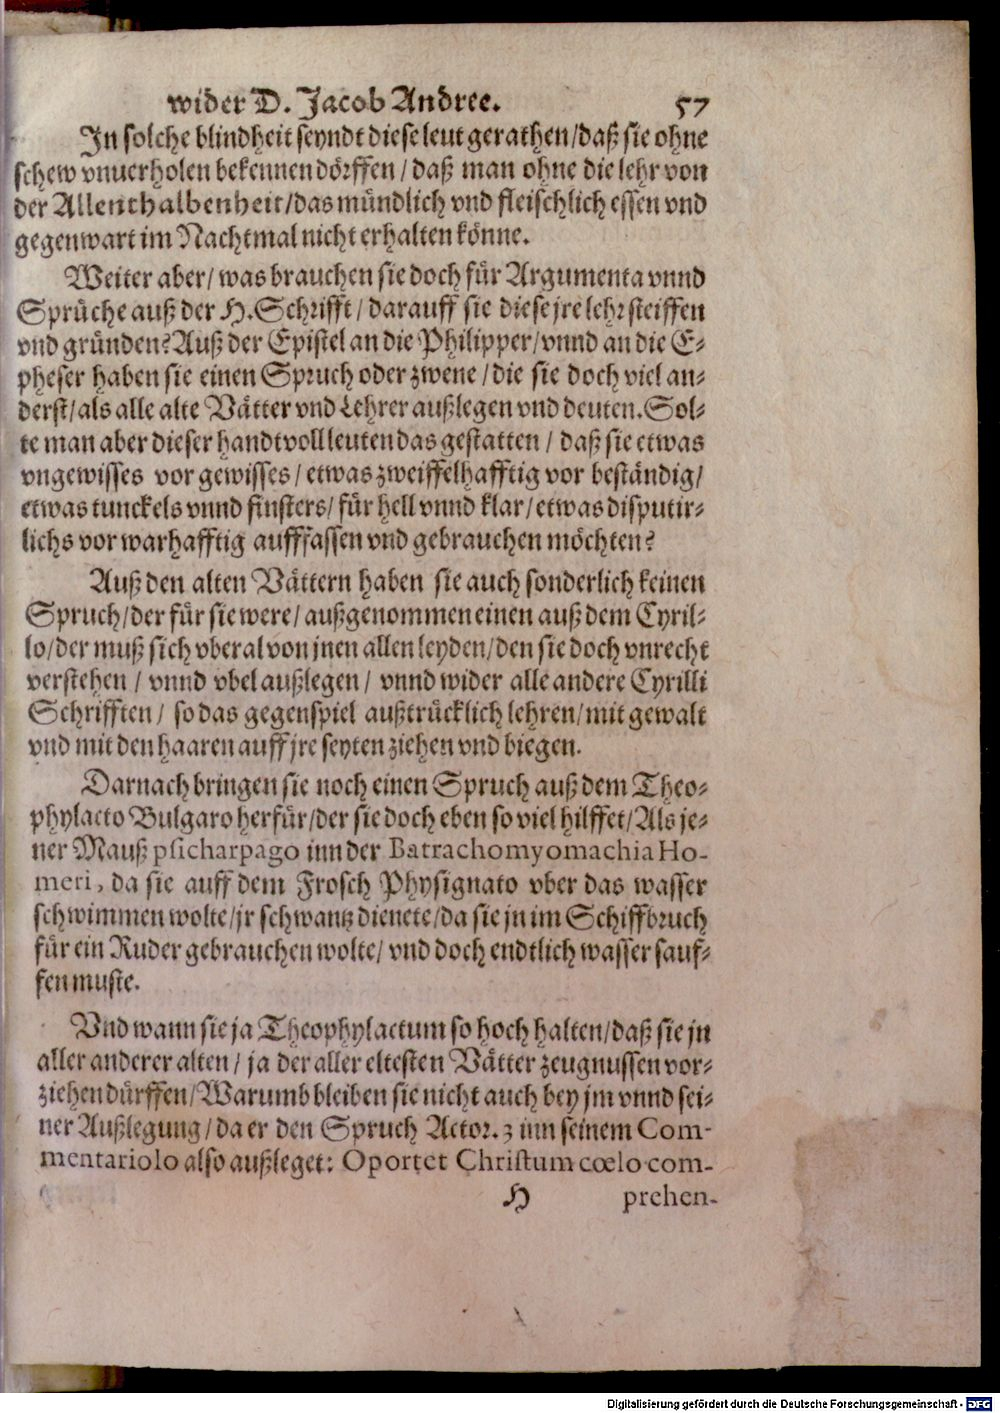 wider D. Jacob Andree. 57
In solche blindheit seyndt diese leut gerathen/daß sie ohne
schew vnuerholen bekennen dörffen/daß man ohne die lehr von
der Allenthalbenheit/das mündlich vnd fleischlich essen vnd
gegenwart im Nachtmal nicht erhalten könne.
Weiter aber/was brauchen sie doch für Argumenta vnnd
Sprüche auß der H. Schrifft/darauff sie diese jre lehr steiffen
vnd gründen? Auß der Epistel an die Philipper/vnnd an die E-
pheser haben sie einen Spruch oder zwene/die sie doch viel an-
derst/als alle alte Vätter vnd Lehrer außlegen vnd deuten. Sol-
te man aber dieser handtvoll leuten das gestatten/daß sie etwas
vngewisses vor gewisses/etwas zweiffelhafftig vor beständig/
etwas tunckels vnnd finsters/für hell vnnd klar/etwas disputir-
lichs vor warhafftig aufffassen vnd gebrauchen möchten?
Auß den alten Vättern haben sie auch sonderlich keinen
Spruch/der für sie were/außgenommen einen auß dem Cyril-
lo/der muß sich vberal von jnen allen leyden/den sie doch vnrecht
verstehen/vnnd vbel außlegen/vnnd wider alle andere Cyrilli
Schrifften/so das gegenspiel außtrücklich lehren/mit gewalt
vnd mit den haaren auff jre seyten ziehen vnd biegen.
Darnach bringen sie noch einen Spruch auß dem Theo-
phylacto Bulgaro herfür/der sie doch eben so viel hilffet/Als je-
ner Mauß psicharpago inn der Batrachomyomachia Ho-
meri, da sie auff dem Frosch Physignato vber das wasser
schwimmen wolte/jr schwantz dienete/da sie jn im Schiffbruch
für ein Ruder gebrauchen wolte/vnd doch endtlich wasser sauf-
fen muste.
Vnd wann sie ja Theophylactum so hoch halten/daß sie jn
aller anderer alten/ja der aller eltesten Vätter zeugnussen vor-
ziehen dürffen/Warumb bleiben sie nicht auch bey jm vnnd sei-
ner Außlegung/da er den Spruch Actor. 3 inn seinem Com-
mentariolo also außleget: Oportet Christum cœlo com-
H prehen-
Digitalisierung gefördert durch die Deutsche Forschungsgemeinschaft - DFG